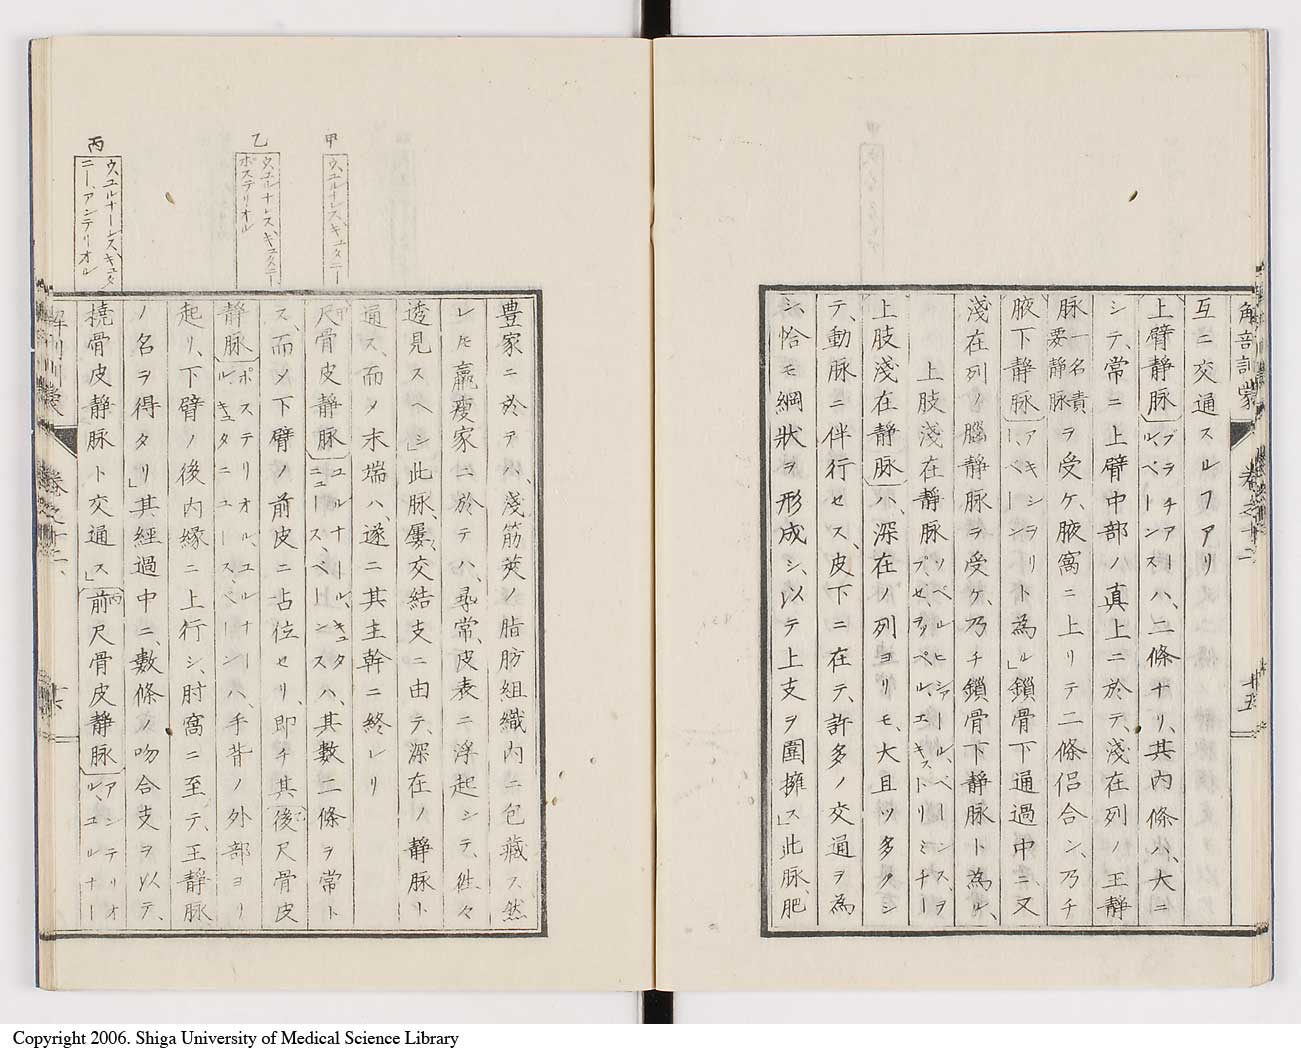 解剖訓蒙 卷之十二 十五
互ニ交通スルヿアリ
上臂静脉ブラチアールベーンスハ、二條ナリ、其内條ハ、大ニ
シテ、常ニ上臂中部ノ真上ニ於テ、淺在列ノ王静
脉一名貴要静脉ヲ受ケ、腋窩ニ上リテ二條侶合シ、乃チ
腋下静脉アキシヲリー、ベーント為ル」鎖骨下通過中ニ、又
淺在列ノ腦静脉ヲ受ケ、乃チ鎖骨下静脉ト為ル、
上肢淺在静脉ソペルヒシアール、ベーンス、ヲプ、ゼ、ヲツペル、エキストリミチー
上肢淺在静脉ハ、深在ノ列ヨリモ、大且ツ多クシ
テ、動脉ニ伴行セス、皮下ニ在テ、許多ノ交通ヲ為
シ、恰モ綱狀ヲ形成シ、以テ上支ヲ圍擁ス」此脉、肥
甲 ウユルナレス、キュタニー
乙 ウユルナレス、キュタニー
ポステリオル
丙 ウユルナーレス、キュタ
ニー、アンテリオル
豊家ニ於テハ、淺筋莢ノ脂肪組織内ニ包藏ス、然
レ𪜈羸瘦家ニ於テハ、尋常、皮表ニ浮起シテ、徃々
透見スヘシ」此脉、屢、交結支ニ由テ、深在ノ静脉ト
通ス、而〆末端ハ、遂ニ其主幹ニ終レリ
甲尺骨皮静脉ユルナール、キュタニユース、ベーンスハ、其數二條ヲ常ト
ス、而〆下臂ノ前皮ニ占位セリ、即チ其乙後尺骨皮
静脉ポステリオル、ユルナール、キュタニユース、ベーンハ、手背ノ外部ヨリ
起リ、下臂ノ後内縁ニ上行シ、肘窩ニ至テ、王静脉
ノ名ヲ得タリ」其經過中ニ、數條ノ吻合支ヲ以テ、
橈骨皮静脉ト交通ス」丙前尺骨皮静脉アンテリオル、ユルナー
解剖訓蒙 卷之十二